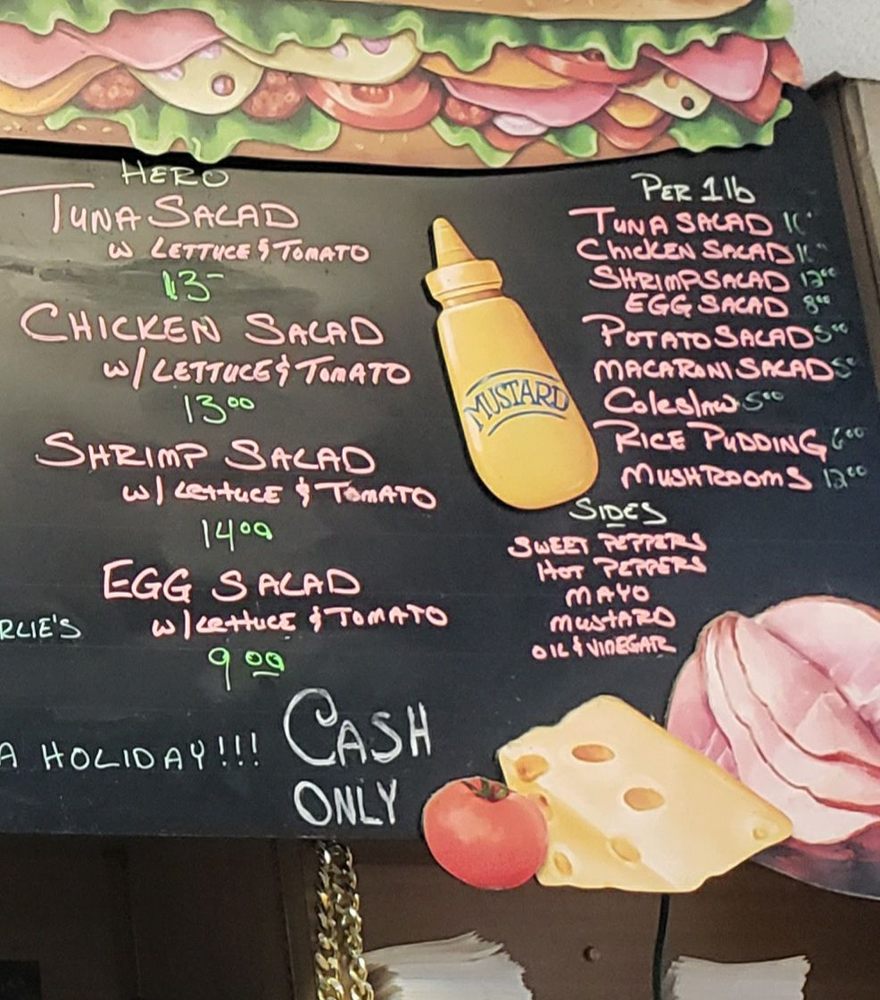 HERO
TUNA SALAD
W LETTUCE & TOMATO
13-
CHICKEN SALAD
W/LETTUCE & TOMATO
13.00
SHRIMP SALAD
W/ LETTUCE & TOMATO
14.00
EGG SALAD
W/LETTUCE & TOMATO
9.00
RLIE'S
A HOLIDAY!!!
CASH
ONLY
MUSTARD
PER 1lb
TUNA SALAD
CHICKEN SALAD
SHRIMP SALAD 12.00
EGG SALAD 8.00
POTATO SALAD 5.00
MACARONI SALAD
Coleslaw 5.00
RICE PUDDING 6.00
MUSHROOMS 12.00
SIDES
SWEET PEPPERS
HOT PEPPERS
MAYO
MUSTARD
OIL & VINEGAR